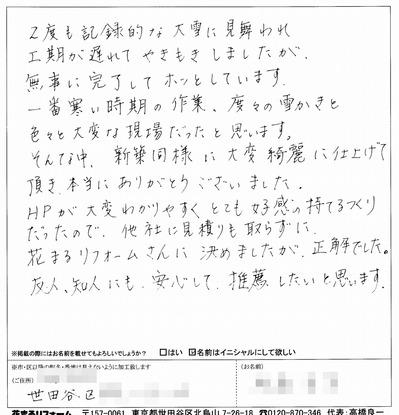 2度も記録的な大雪に見舞われ
工期が遅れて やきもきしましたが、
無事に完了して ホッとしています。
一番寒い時期の作業、度々の雪かきと
色々と大変な現場だったと思います。
そんな中、新築同様に大変綺麗に仕上げて
頂き、本当にありがとうございました。
HPが大変わかりやすく、とても好感の持てるつくり
だったので、他社に見積りも取らずに、
花まるリフォームさんに決めましたが、正解でした。
友人、知人にも、安心して、推薦したいと思います。
※掲載の際にはお名前を載せてもよろしいでしょうか?
□はい
☑名前はイニシャルにして欲しい
(ご住所)
(お名前)
世田谷区
花まるリフォーム 〒157-0061 東京都世田谷区北烏山7-26-18 0120-870-346 代表:高橋良一